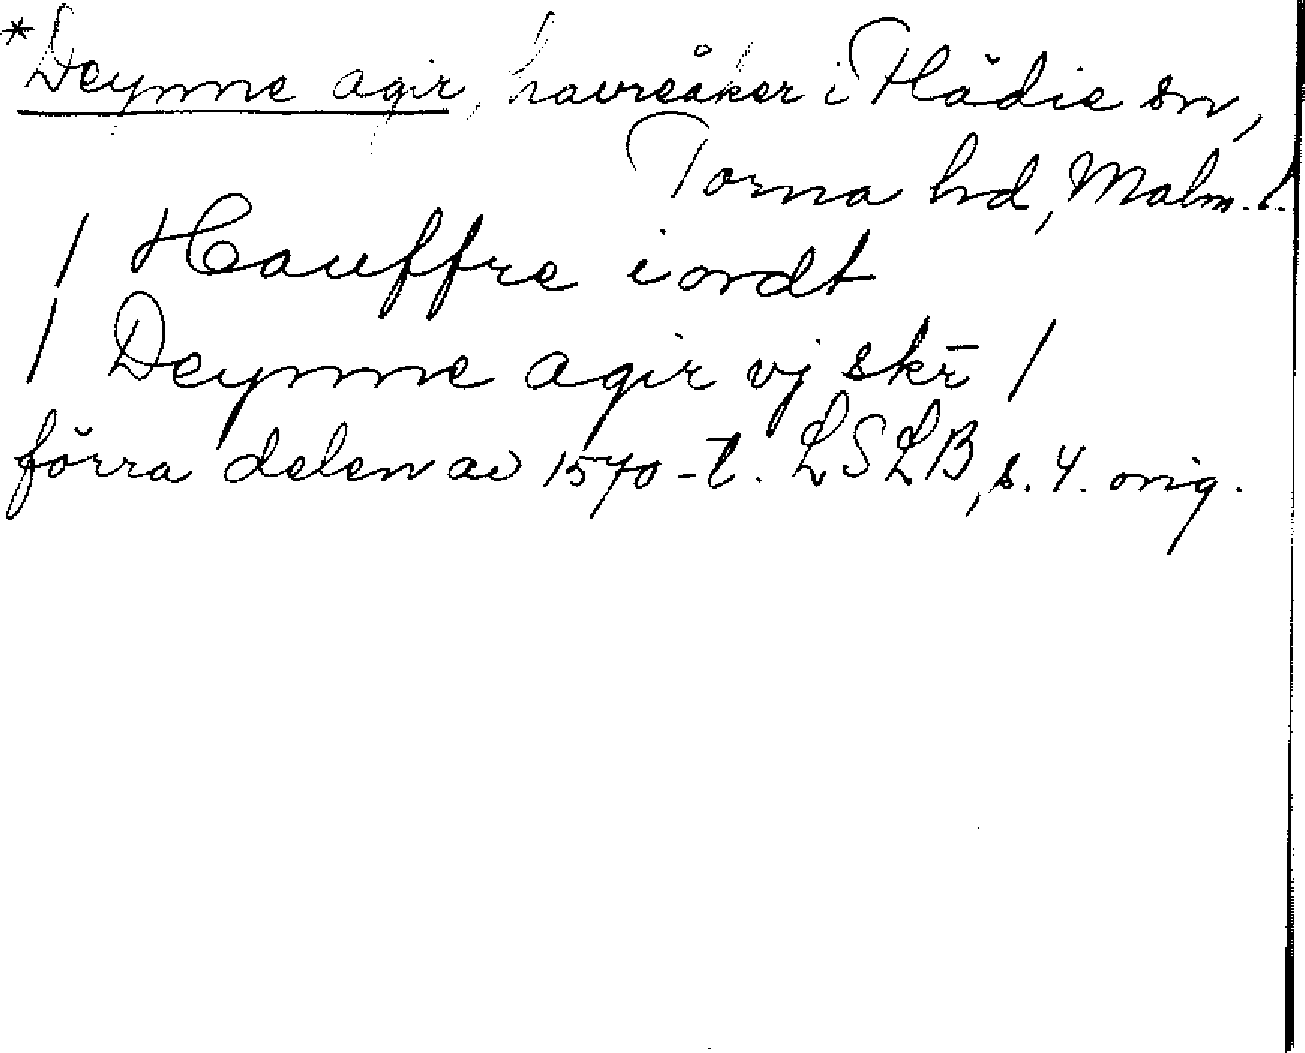 *Deynne agir, havreåker i Flädie sn,
Torna hd, Malm. l.
/ Hauffre iordt
/ Deynne agir vj skr̄ /
förra delen av 1570-t. LSLB, s. 4. orig.